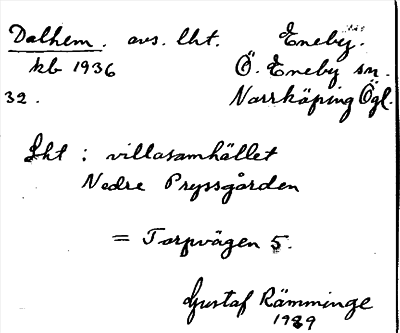 Dalhem. avs. lht. Eneby.
kb 1936 Ö. Eneby sn.
32. Norrköping Ögl.
Lht : villasamhället
Nedre Pryssgården
= Torpvägen 5.
Gustaf Rämminge
1989